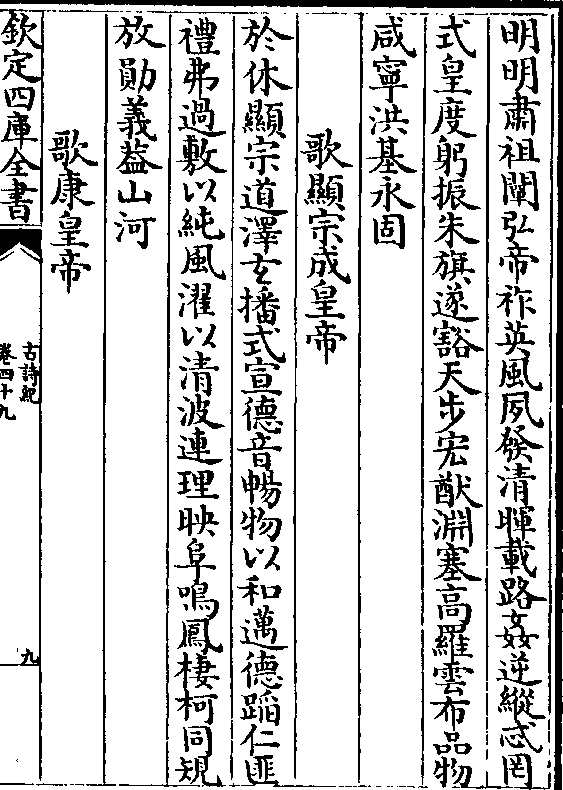 明明肅祖闡弘帝祚英風夙發清暉載路姦逆縱忒罔
式皇度躬振朱旗遂豁天步宏猷淵塞高羅雲布品物
咸寧洪基永固
歌顯宗成皇帝
於休顯宗道澤玄播式宣德音暢物以和邁德蹈仁匪
禮弗過敷以純風濯以清波連理映阜鳴鳳棲柯同規
放勛義葢山河
歌康皇帝
欽定四庫全書
古詩紀
卷四十九
九